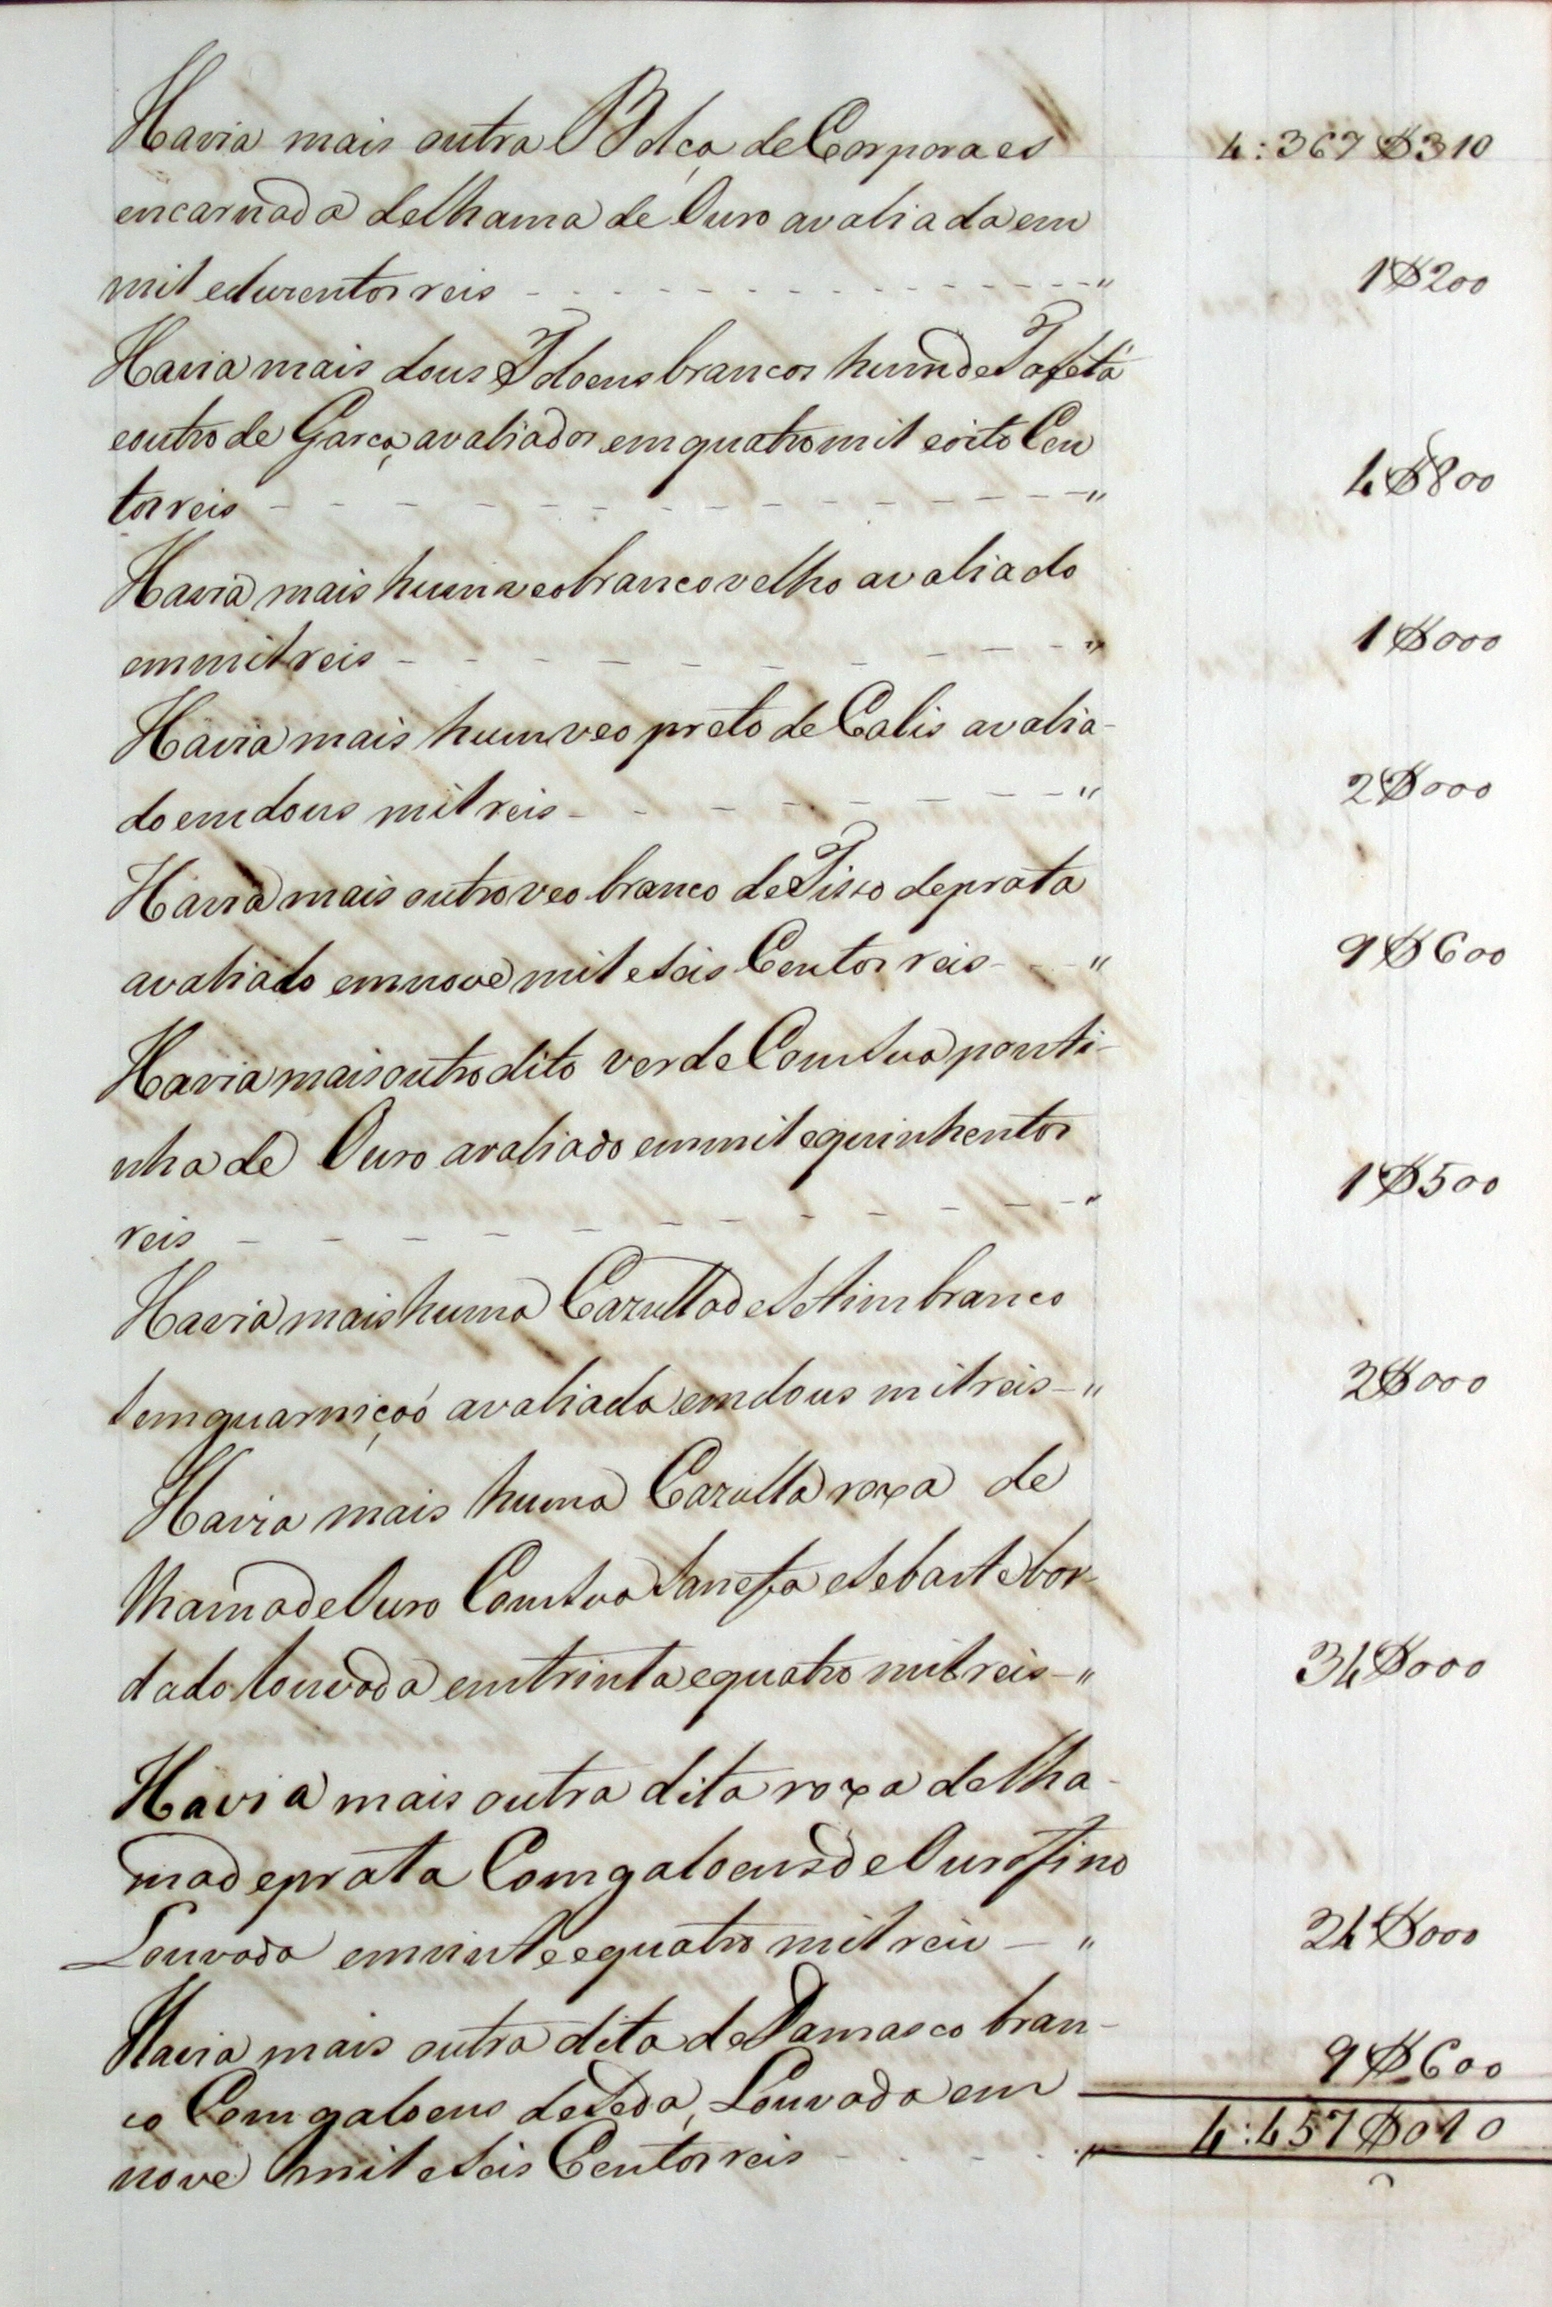 Havia mais outra Bolça de Corporaes 4:367$310
encarnada de lhama de Ouro avaliada em
mil e duzentos reis - - - - - - - - - - - - - - - - " 1$200
Havia mais dous Idoens brancos hum de Tafetá
e outro de Garça avaliados em quatro mil e oito Cen
tos reis - - - - - - - - - - - - - - " 4$800
Havia mais hum veo branco velho avaliado
em mil reis - - - - - - - - - - " 1$000
Havia mais hum veo preto de Calis avalia-
do em dous mil reis - - - - - - - - " 2$000
Havia mais outro veo branco de Tisso de prata
avaliado em nove mil e seis Centos reis - - - " 9$600
Havia mais outro dito verde Com sua ponti-
nha de Ouro avaliado em mil e quinhentos
reis - - - - - - - - - - - - " 1$500
Havia mais huma Cazulla de Setim branco
sem guarniçaó avaliada em dous mil reis - " 2$000
Havia mais huma Cazulla roxa de
lhama de Ouro Com sua Sanefa e Sebaste bor-
dado louvada em trinta e quatro mil reis - " 34$000
Havia mais outra dita roxa de lha-
ma de prata Com galoens de Ouro fino
Louvada em vinte e quatro mil reis - " 24$000
Havia mais outra dita de Damasco bran-
co Com galoens de Seda, Louvada em 9$600
nove mil e seis Centos reis - - - - " 4:457$010